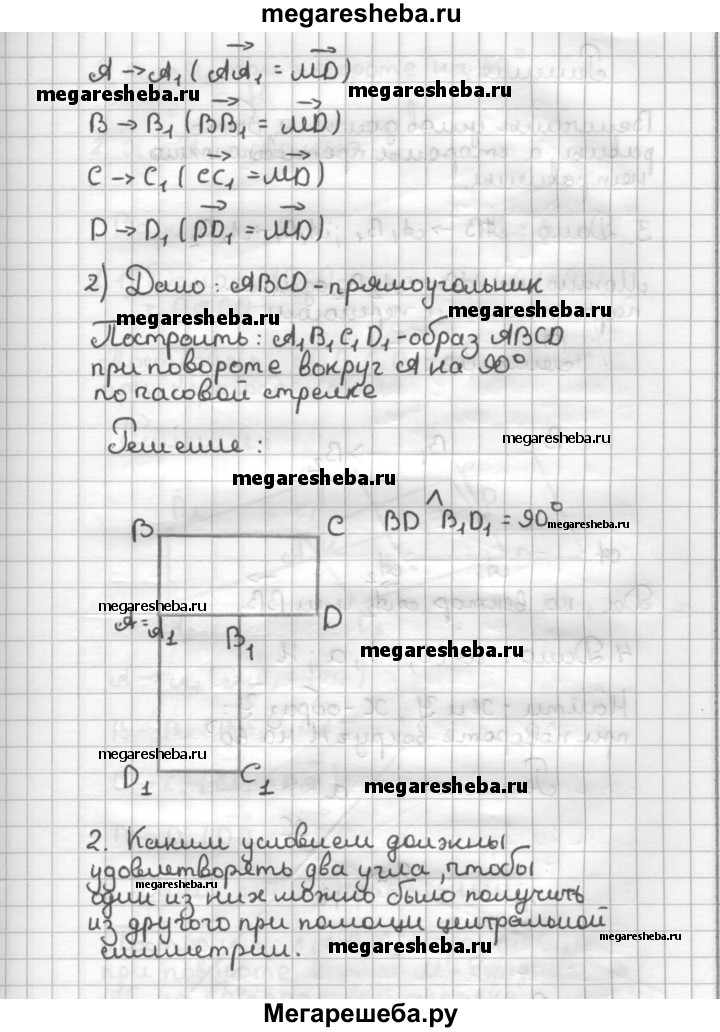 megaresheba.ru
A → A₁ (AA₁ = MD)
megaresheba.ru megaresheba.ru
B → B₁ (BB₁ = MD)
megaresheba.ru
C → C₁ (CC₁ = MD)
D → D₁ (DD₁ = MD)
2) Дано: ABCD - прямоугольник
megaresheba.ru megaresheba.ru
Построить: A₁B₁C₁D₁ - образ ABCD
при повороте вокруг A на 90°
по часовой стрелке
Решение:
megaresheba.ru
megaresheba.ru
B C BD ^ B₁D₁ = 90°
megaresheba.ru
megaresheba.ru
A = A₁ B₁ D
megaresheba.ru
megaresheba.ru
D₁ C₁
megaresheba.ru
2. Каким условием должны
удовлетворять два угла, чтобы
megaresheba.ru
один из них можно было получить
из другого при помощи центральной
megaresheba.ru
симметрии.
megaresheba.ru
Мегарешеба.ру